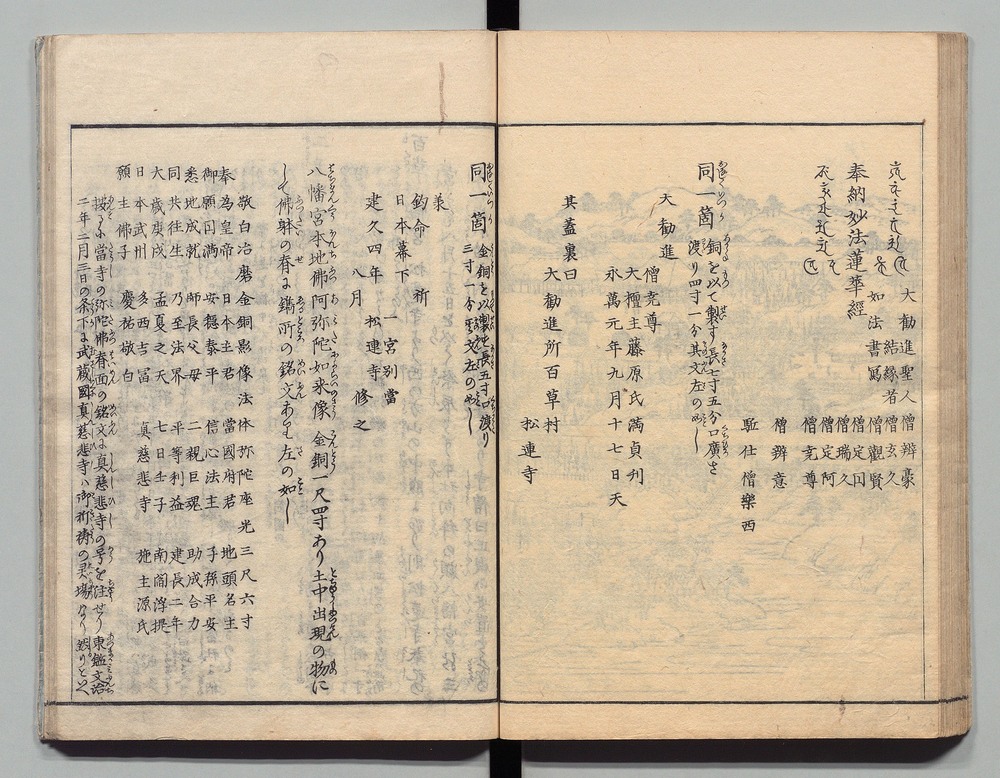 大勧進聖人 僧辨豪
結縁者 僧玄久
如法書寫 僧觀賢
奉納妙法蓮華經
僧定因
僧瑞久
僧定阿
僧兗尊
僧辨意
駈仕 僧樂西
同一箇 銅を以て製す長七寸五分口廣さ
渡り四寸一分其文左の如し
大勧進
僧兗尊
大檀主藤原氏滿貞利
永萬元年九月十七日天
其蓋裏曰
大勧進所百草村
松連寺
同一箇 金銅を以製す長五寸口渡り
三寸一分野文左の如し
鈞命 祈
日本幕下 一宮別當
建久四年八月 松連寺 修之
八幡宮本地佛阿弥陀如来像 金銅一尺四寸あり土中出現の物に
して佛躰の脊に鐫所の銘文あり左の如し
敬白冶磨金銅影像法体弥陀座光三尺六寸
奉為皇帝 日本主君 當國府君 地頭名主
御願圓滿 安穏泰平 信心法主 子孫平安
悉地成就 師長父母 二親巨魂 助成合力
同共往生 乃至法界 平等利益 建長二年
大歳庚戌 孟夏之天 七日壬子 南閻浮提
日本武州 多西吉冨 真慈悲寺 施主源氏
願主佛子 慶祐敬白
按るに當寺の弥陀佛脊面の銘文に真慈悲寺の号を注せり東鑑文治
二年二月三日の条下に武蔵國真慈悲寺ハ御祈祷の灵場なり